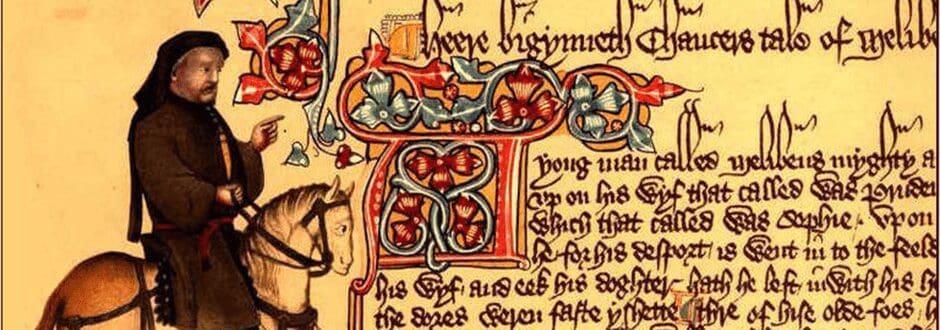 Heere bigynneth Chaucers tale of Melibe
A yong man called Melibeus myghty a
vp on his wyf that called was Pruden
which that called was Sophie / Vpon
he for his desport is went in to the feeld
his wyf and eek his doghter hath he left in with his h
the dores weren faste yshette / thre of hise olde foes h